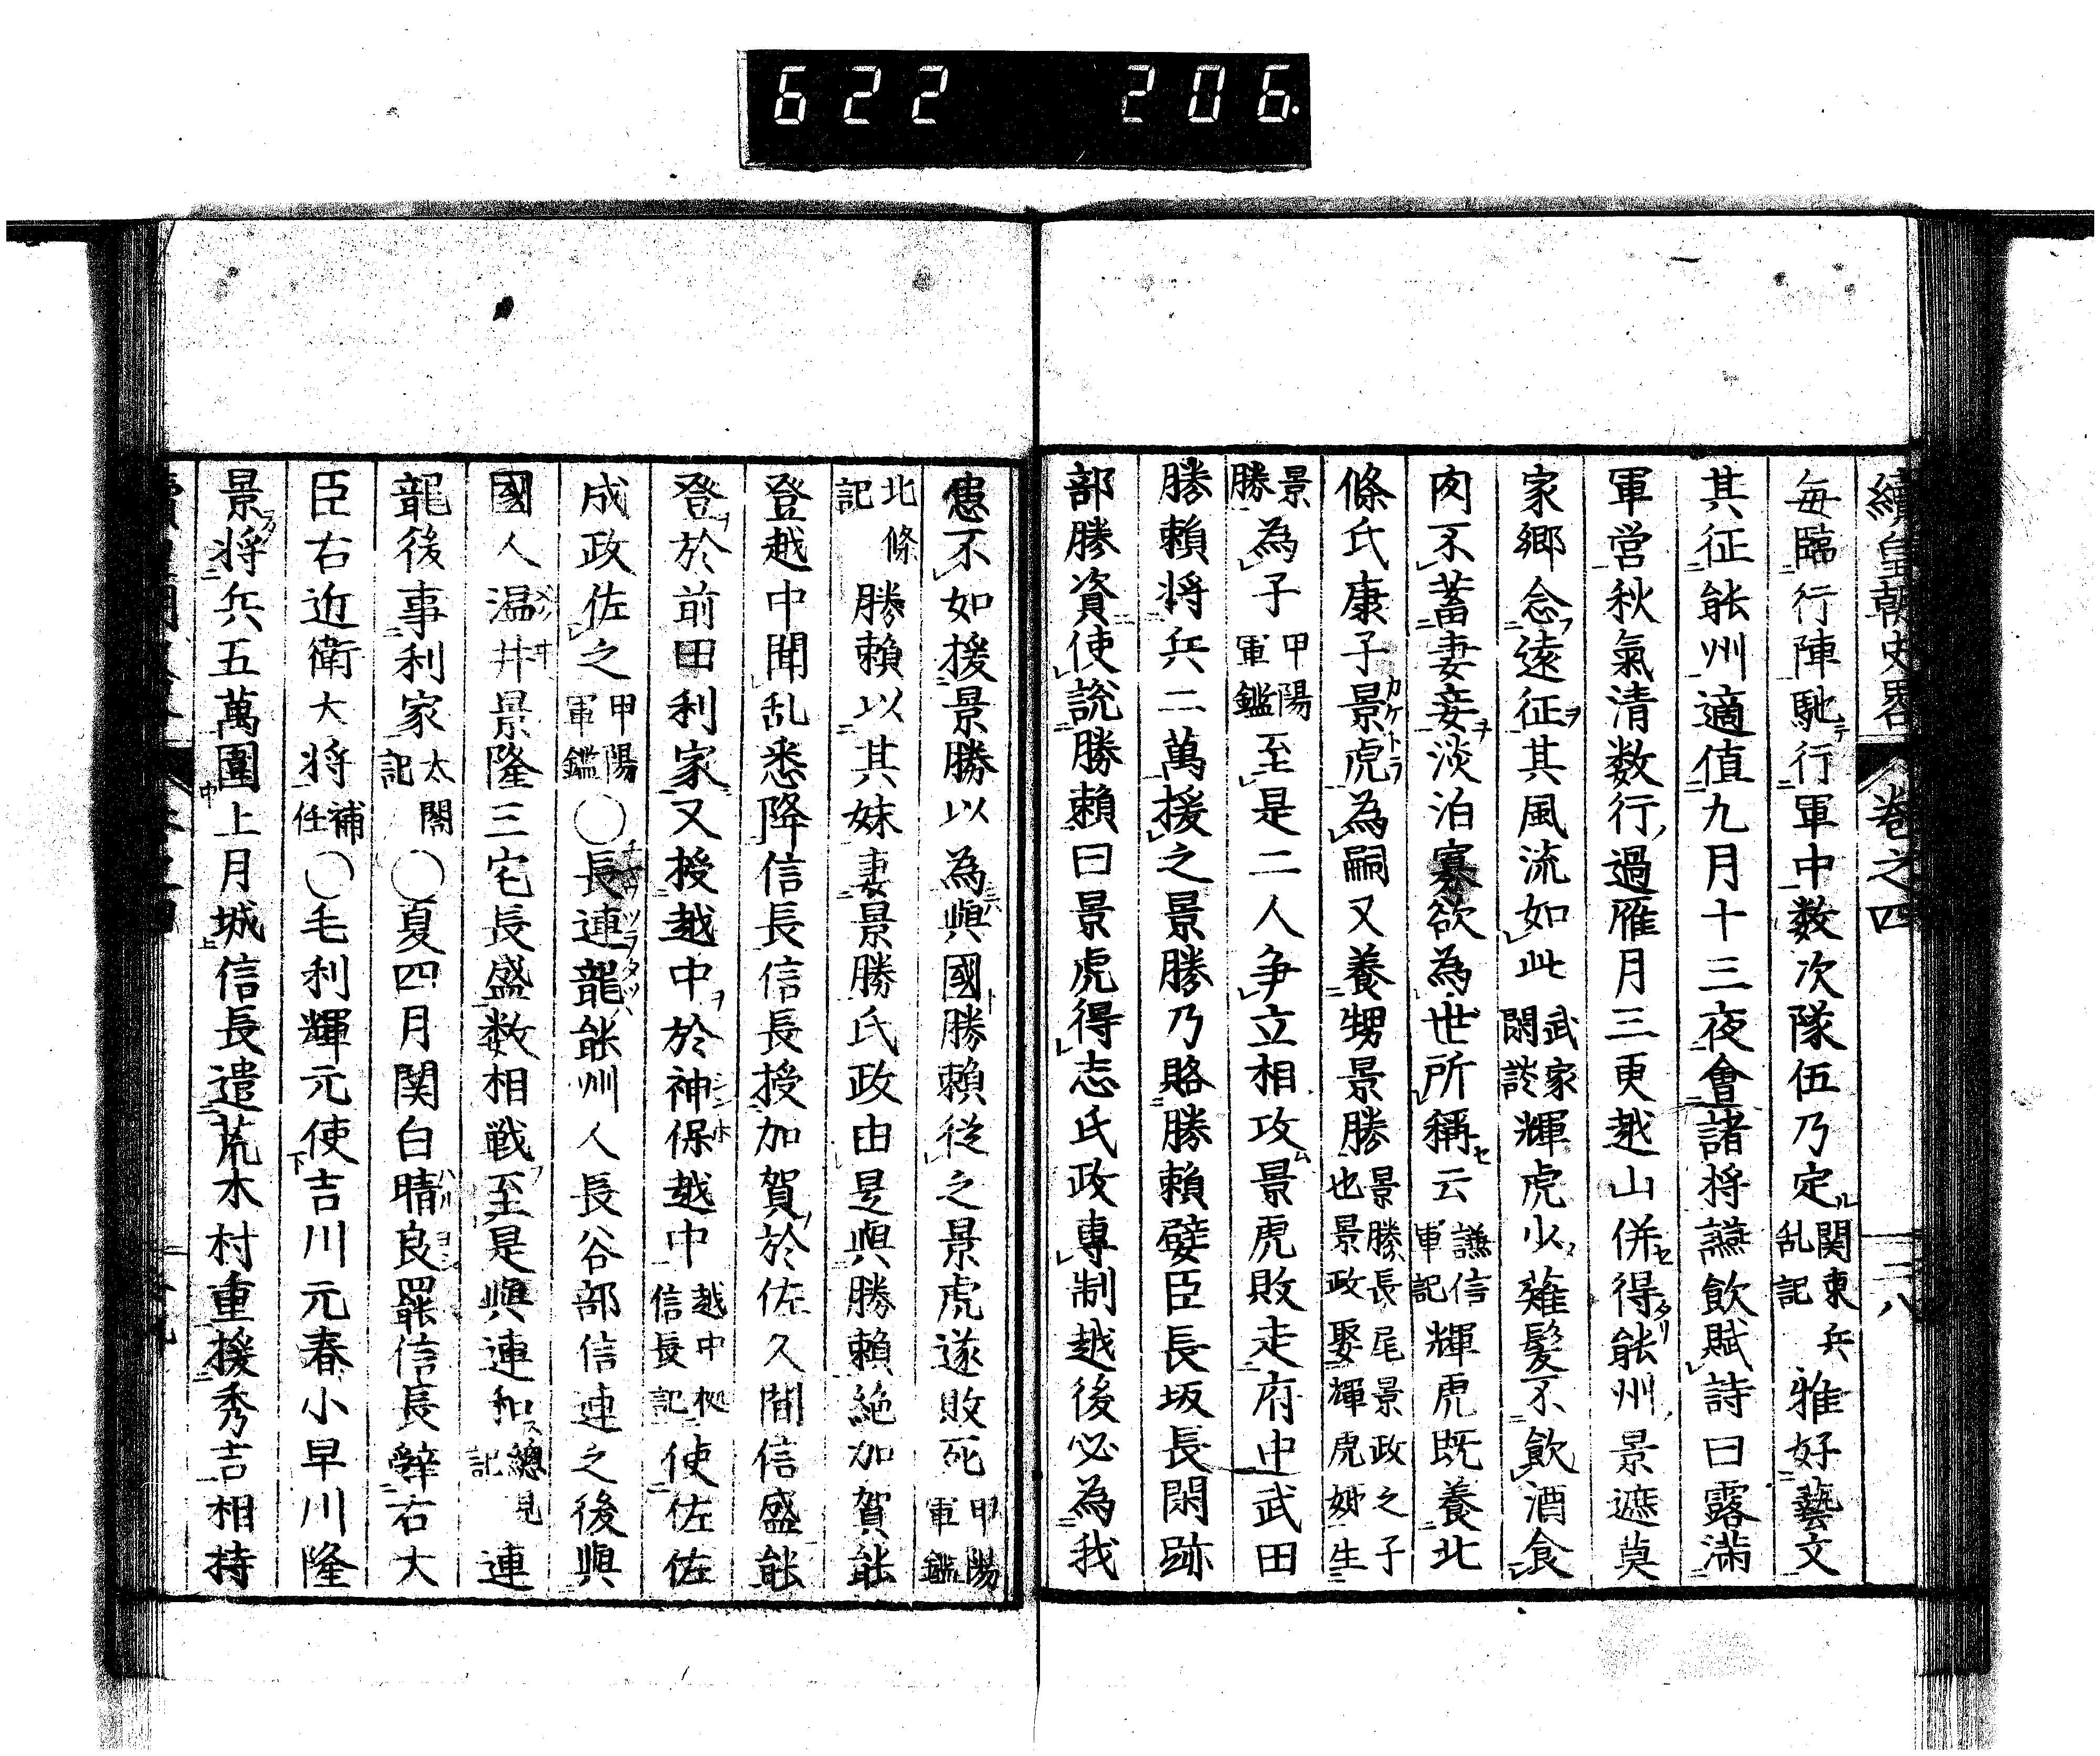 622 206.
續皇朝史畧 卷之四 二八
毎臨行陣馳行軍中数次隊伍乃定関東兵乱記雅好藝文
其征能州適値九月十三夜會諸将讌飲賦詩曰露滿
軍営秋氣清数行過雁月三更越山併得能州景遮莫
家郷念遠征其風流如此武家閑談輝虎少薙髪不飲酒食
肉不蓄妻妾淡泊寡欲為世所稱云謙信軍記輝虎既養北
條氏康子景虎為嗣又養甥景勝景勝長尾景政之子也景政娶輝虎姉生
景勝為子甲陽軍鑑至是二人争立相攻景虎敗走府中武田
勝頼将兵二萬援之景勝乃賂勝頼嬖臣長坂長閑跡
部勝資使説勝頼曰景虎得志氏政専制越後必為我
患不如援景勝以為與國勝頼従之景虎遂敗死甲陽軍鑑
北條記勝頼以其妹妻景勝氏政由是與勝頼絶加賀能
登越中聞乱悉降信長信長授加賀於佐久間信盛能
登於前田利家又授越中於神保越中越中城信長記使佐佐
成政佐之甲陽軍鑑○長連龍能州人長谷部信連之後與
國人温井景隆三宅長盛数相戦至是與連和總見記連
龍後事利家太閤記○夏四月関白晴良罷信長辭右大
臣右近衛大将補任○毛利輝元使吉川元春小早川隆
景将兵五萬圍上月城信長遣荒木村重援秀吉相持